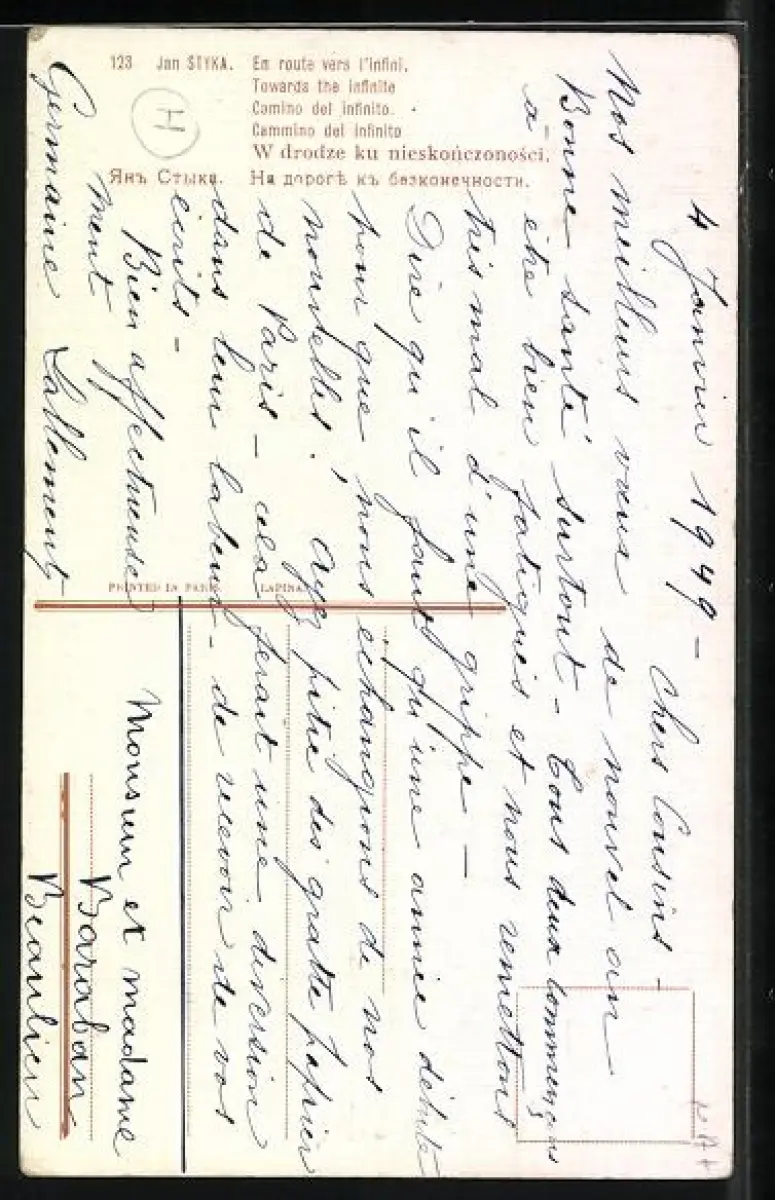 123 Jan STYKA. En route vers l'infini.
Towards the infinite
Camino del infinito.
Cammino del infinito
W drodze ku nieskończoności.
Янъ Стыка. На дорогѣ къ безконечности.
H
4 Janvier 1949 - Chers Cousins -
Nos meilleurs vœux de nouvel an
Bonne santé surtout - Tous deux commençons
à être bien fatigués et nous remettons
très mal d'une grippe -
Dire qu'il faut qu'une année débute
pour que nous échangions de nos
nouvelles! Ayez pitié des gratte papier
de Paris - cela ferait une diversion
dans leur labeur - de recevoir de vos
écrits -
Bien affectueuse
ment
Germaine Lallement
PRINTED IN PARIS LAPINA
Monsieur et madame
Baraban
Beaulieu